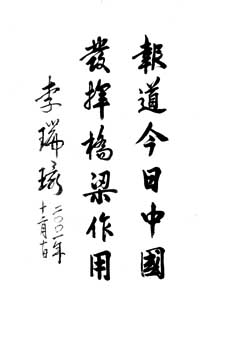 報道今日中國
發揮橋梁作用
李瑞環
二〇〇一年
十一月十日